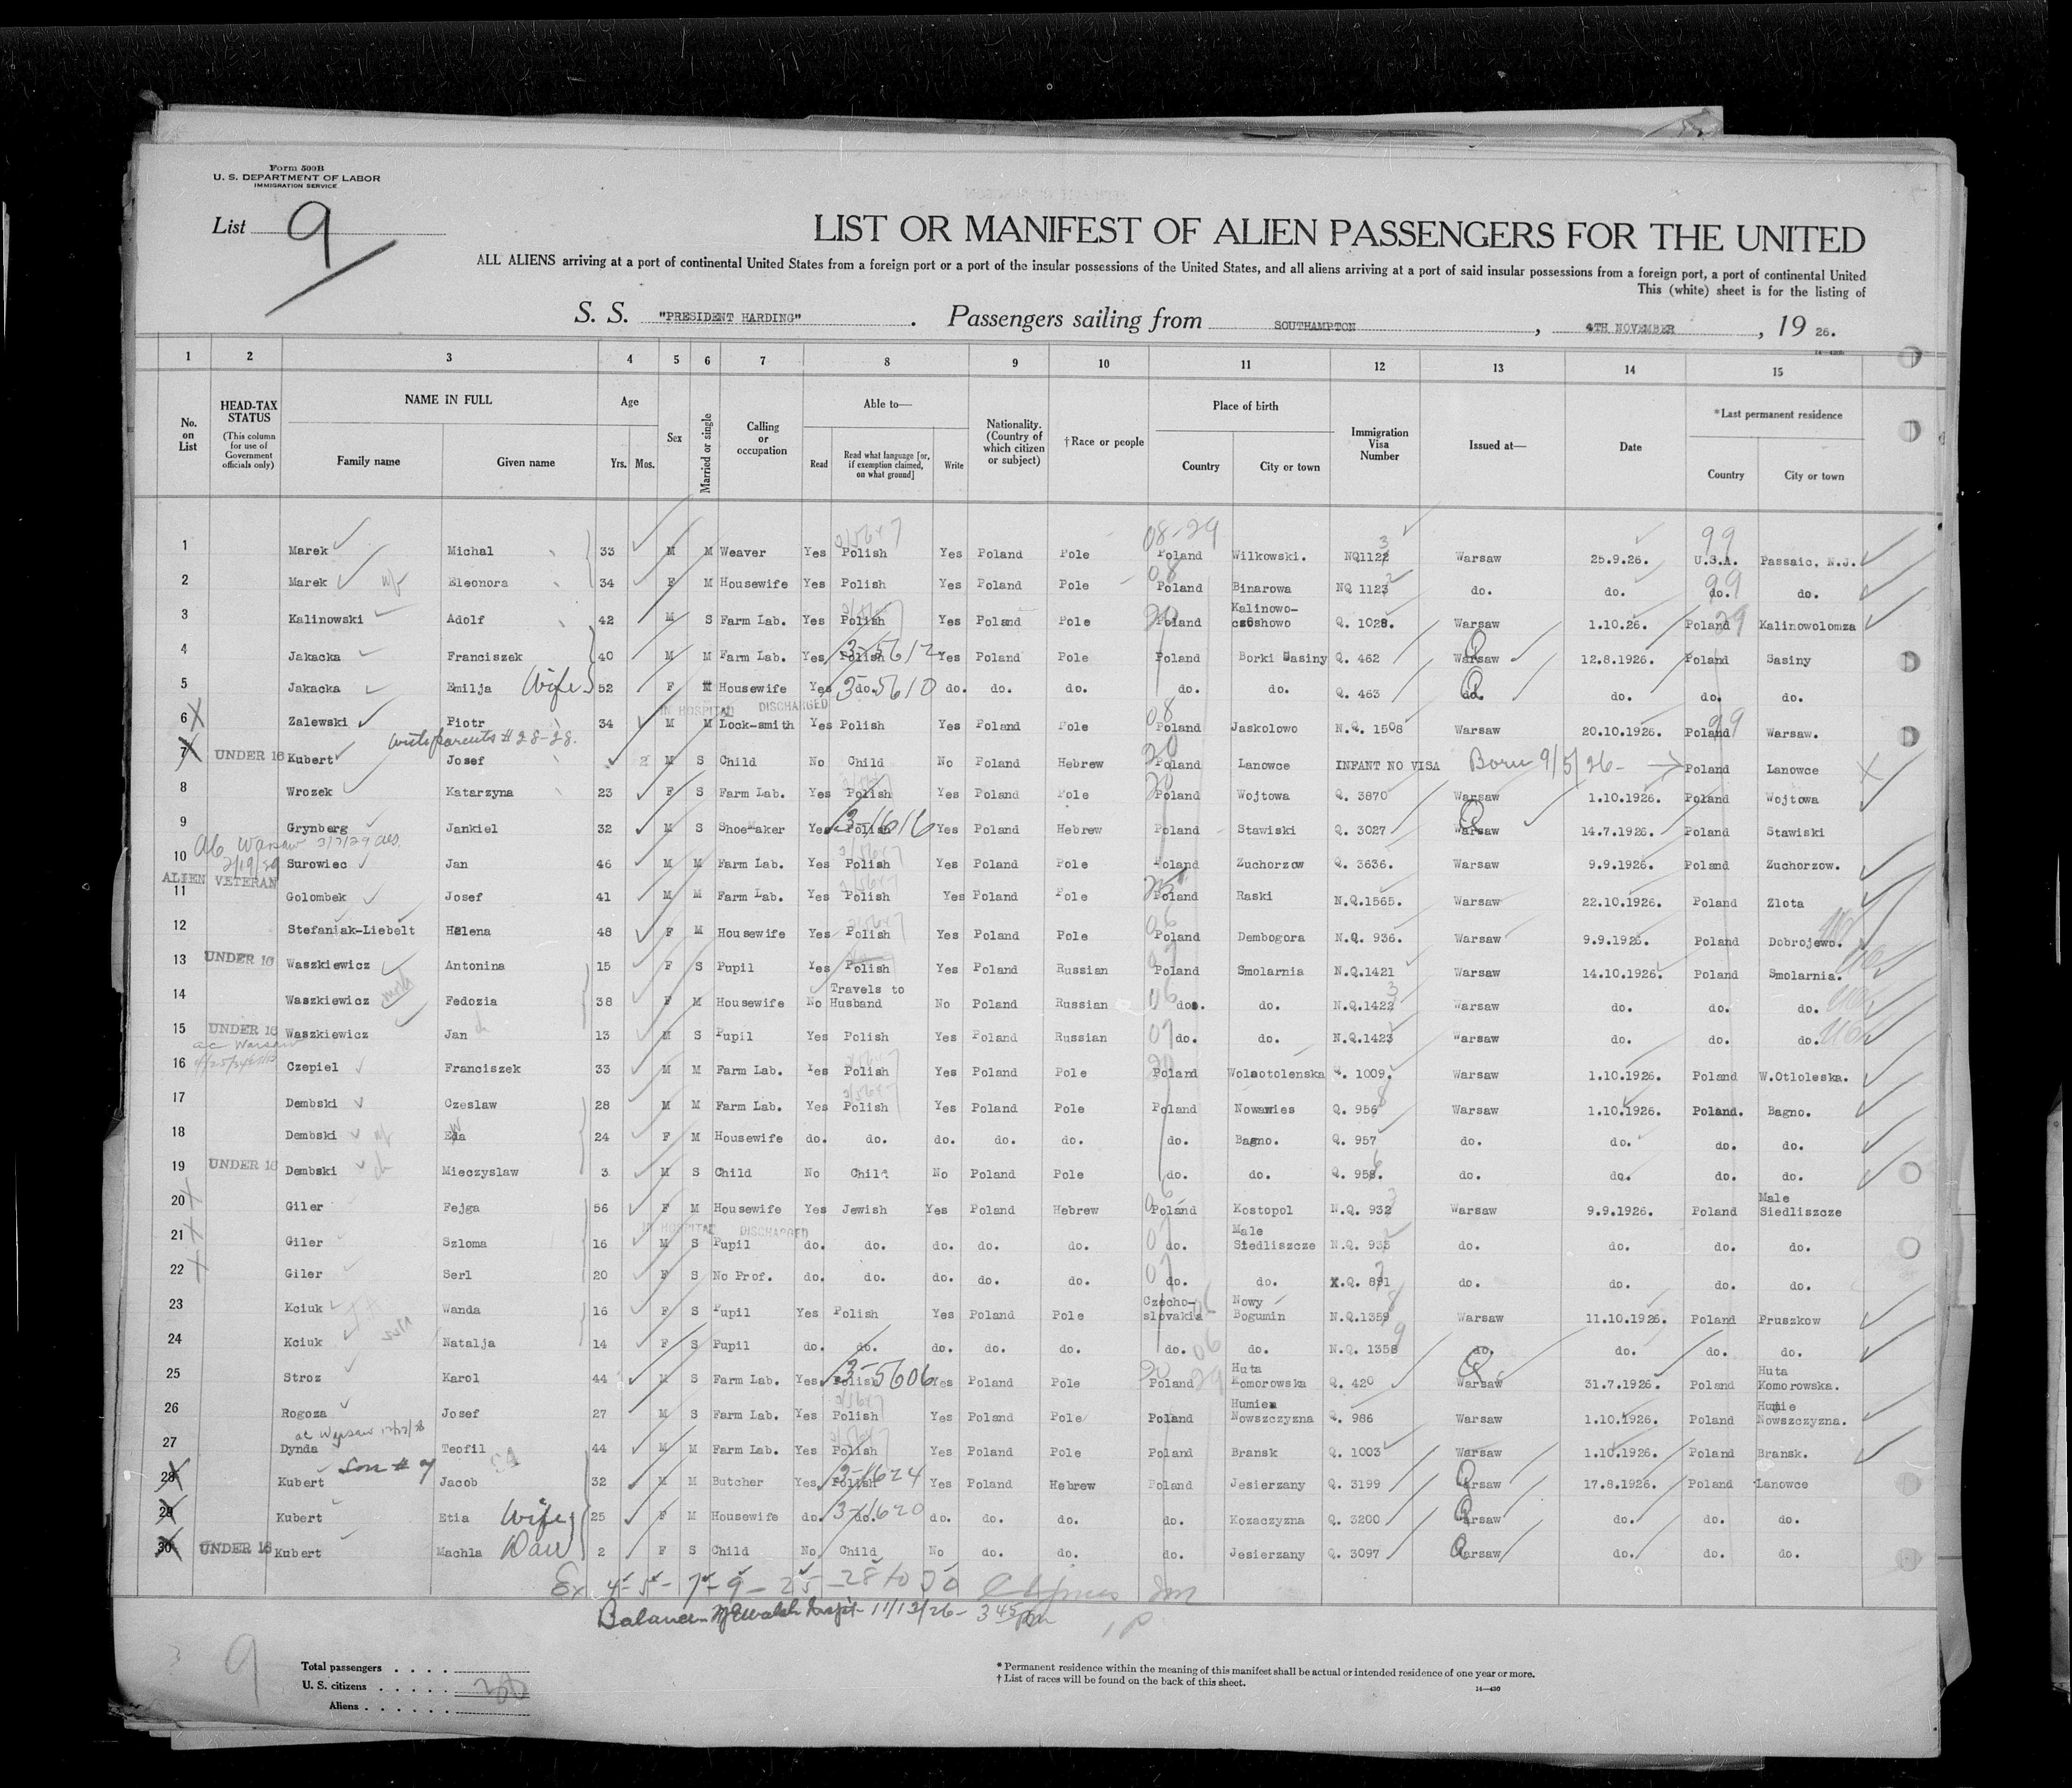 Form 500B
U. S. DEPARTMENT OF LABOR
IMMIGRATION SERVICE
List 9
LIST OR MANIFEST OF ALIEN PASSENGERS FOR THE UNITED
ALL ALIENS arriving at a port of continental United States from a foreign port or a port of the insular possessions of the United States, and all aliens arriving at a port of said insular possessions from a foreign port, a port of continental United
This (white) sheet is for the listing of
S. S. "PRESIDENT HARDING". Passengers sailing from SOUTHAMPTON, 4TH NOVEMBER, 19 26.
1 2 3 4 5 6 7 8 9 10 11 12 13 14 15
No. on List
HEAD-TAX STATUS (This column for use of Government officials only)
NAME IN FULL
Family name Given name
Age Yrs. Mos.
Sex
Married or single
Calling or occupation
Able to—
Read Read what language [or, if exemption claimed, on what ground] Write
Nationality. (Country of which citizen or subject)
†Race or people
Place of birth
Country City or town
Immigration Visa Number
Issued at—
Date
*Last permanent residence
Country City or town
08-29 99
1 Marek Michal 33 M M Weaver Yes Polish Yes Poland Pole Poland Wilkowski. NQ1122 3 Warsaw 25.9.26. U.S.A. Passaic, N.J.
2 Marek wf Eleonora 34 F M Housewife Yes Polish Yes Poland Pole 08 Poland Binarowa NQ 1123 2 do. do. 99 do. do.
3 Kalinowski Adolf 42 M S Farm Lab. Yes Polish Yes Poland Pole Poland Kalinowo-czoshowo Q. 1028. Warsaw 1.10.26. Poland 29 Kalinowolomza
4 Jakacka Franciszek 40 M M Farm Lab. Yes Polish 3-5612 Yes Poland Pole Poland Borki Sasiny Q. 462 Warsaw 12.8.1926. Poland Sasiny
5 Jakacka Emilja Wife 52 F M Housewife Yes do. 3-5610 do. do. do. do. do. Q. 463 do. do. do. do.
IN HOSPITAL DISCHARGED
6 X Zalewski Piotr 34 M M Lock-smith Yes Polish Yes Poland Pole 08 Poland Jaskolowo N.Q. 1508 Warsaw 20.10.1926. Poland 99 Warsaw.
with parents # 28-28.
7 UNDER 16 Kubert Josef 2 M S Child No Child No Poland Hebrew 20 Poland Lanowce INFANT NO VISA Born 9/5/26- Poland Lanowce X
8 Wrozek Katarzyna 23 F S Farm Lab. Yes Polish Yes Poland Pole 20 Poland Wojtowa Q. 3870 Warsaw 1.10.1926. Poland Wojtowa
9 Grynberg Jankiel 32 M S Shoemaker Yes Polish 3-1616 Yes Poland Hebrew Poland Stawiski Q. 3027 Warsaw 14.7.1926. Poland Stawiski
10 Surowiec Jan 46 M M Farm Lab. Yes Polish Yes Poland Pole Poland Zuchorzow Q. 3636. Warsaw 9.9.1926. Poland Zuchorzow.
ALIEN VETERAN
11 Golombek Josef 41 M M Farm Lab. Yes Polish Yes Poland Pole Poland Raski N.Q.1565. Warsaw 22.10.1926. Poland Zlota
12 Stefaniak-Liebelt Helena 48 F M Housewife Yes Polish Yes Poland Pole 06 Poland Dembogora N.Q. 936. Warsaw 9.9.1926. Poland Dobrojewo.
13 UNDER 16 Waszkiewicz Antonina 15 F S Pupil Yes Polish Yes Poland Russian Poland Smolarnia N.Q.1421 Warsaw 14.10.1926. Poland Smolarnia.
14 Waszkiewicz Fedozia 38 F M Housewife No Travels to Husband No Poland Russian 06 do. do. N.Q.1422 3 Warsaw do. do. do.
15 UNDER 16 Waszkiewicz Jan 13 M S Pupil Yes Polish Yes Poland Russian 07 do. do. N.Q.1423 Warsaw do. do. do.
16 Czepiel Franciszek 33 M M Farm Lab. Yes Polish Yes Poland Pole Poland Wolaotolenska Q. 1009. Warsaw 1.10.1926. Poland W.Otloleska.
17 Dembski Czeslaw 28 M M Farm Lab. Yes Polish Yes Poland Pole Poland Nowawies Q. 956 8 Warsaw 1.10.1926. Poland. Bagno.
18 Dembski wf Ewa 24 F M Housewife do. do. do. do. do. do. Bagno. Q. 957 do. do. do. do.
19 UNDER 16 Dembski ch Mieczyslaw 3 M S Child No Child No Poland Pole do. do. Q. 958. 6 do. do. do. do.
20 Giler Fejga 56 F M Housewife Yes Jewish Yes Poland Hebrew Poland Kostopol N.Q. 932 3 Warsaw 9.9.1926. Poland Male Siedliszcze
IN HOSPITAL DISCHARGED
21 Giler Szloma 16 M S Pupil do. do. do. do. do. 07 do. Male Siedliszcze N.Q. 933 2 do. do. do. do.
22 Giler Serl 20 F S No Prof. do. do. do. do. do. 07 do. do. N.Q. 891 do. do. do. do.
23 Kciuk Wanda 16 F S Pupil Yes Polish Yes Poland Pole Czecho-slovakia 06 Nowy Bogumin N.Q.1359 8 Warsaw 11.10.1926. Poland Pruszkow
24 Kciuk Natalja 14 F S Pupil do. do. do. do. do. do. 06 do. N.Q. 1358 9 do. do. do. do.
25 Stroz Karol 44 M S Farm Lab. Yes Polish 3-5606 Yes Poland Pole Poland 29 Huta Komorowska Q. 420 Warsaw 31.7.1926. Poland Huta Komorowska.
26 Rogoza Josef 27 M S Farm Lab. Yes Polish Yes Poland Pole Poland Humien Nowszczyzna Q. 986 Warsaw 1.10.1926. Poland Humie Nowszczyzna.
27 Dynda Teofil 44 M M Farm Lab. Yes Polish Yes Poland Pole Poland Bransk Q. 1003 Warsaw 1.10.1926. Poland Bransk.
28 Kubert Son # 7 Jacob 32 M M Butcher Yes Polish 3-1624 Yes Poland Hebrew Poland Jesierzany Q. 3199 Warsaw 17.8.1926. Poland Lanowce
29 Kubert Etia Wife 25 F M Housewife do. do. 3-1620 do. do. do. do. Kozaczyzna Q. 3200 Warsaw do. do. do.
30 UNDER 16 Kubert Machla Dau 2 F S Child No Child No do. do. do. Jesierzany Q. 3097 Warsaw do. do. do.
Ex 4-5-7-9-25-28 to 30
Balance- Walsh Insp't- 11/13/26- 3 45 pm
9
Total passengers
U. S. citizens
Aliens
* Permanent residence within the meaning of this manifest shall be actual or intended residence of one year or more.
† List of races will be found on the back of this sheet.
14—430